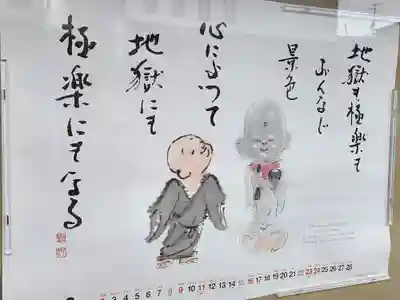 地獄も極楽も
おんなじ
景色
心によって
地獄にも
極楽にもなる
9 10 11 12 13 14 15 16 17 18 19 20 21 22 23 24 25 26 27 28